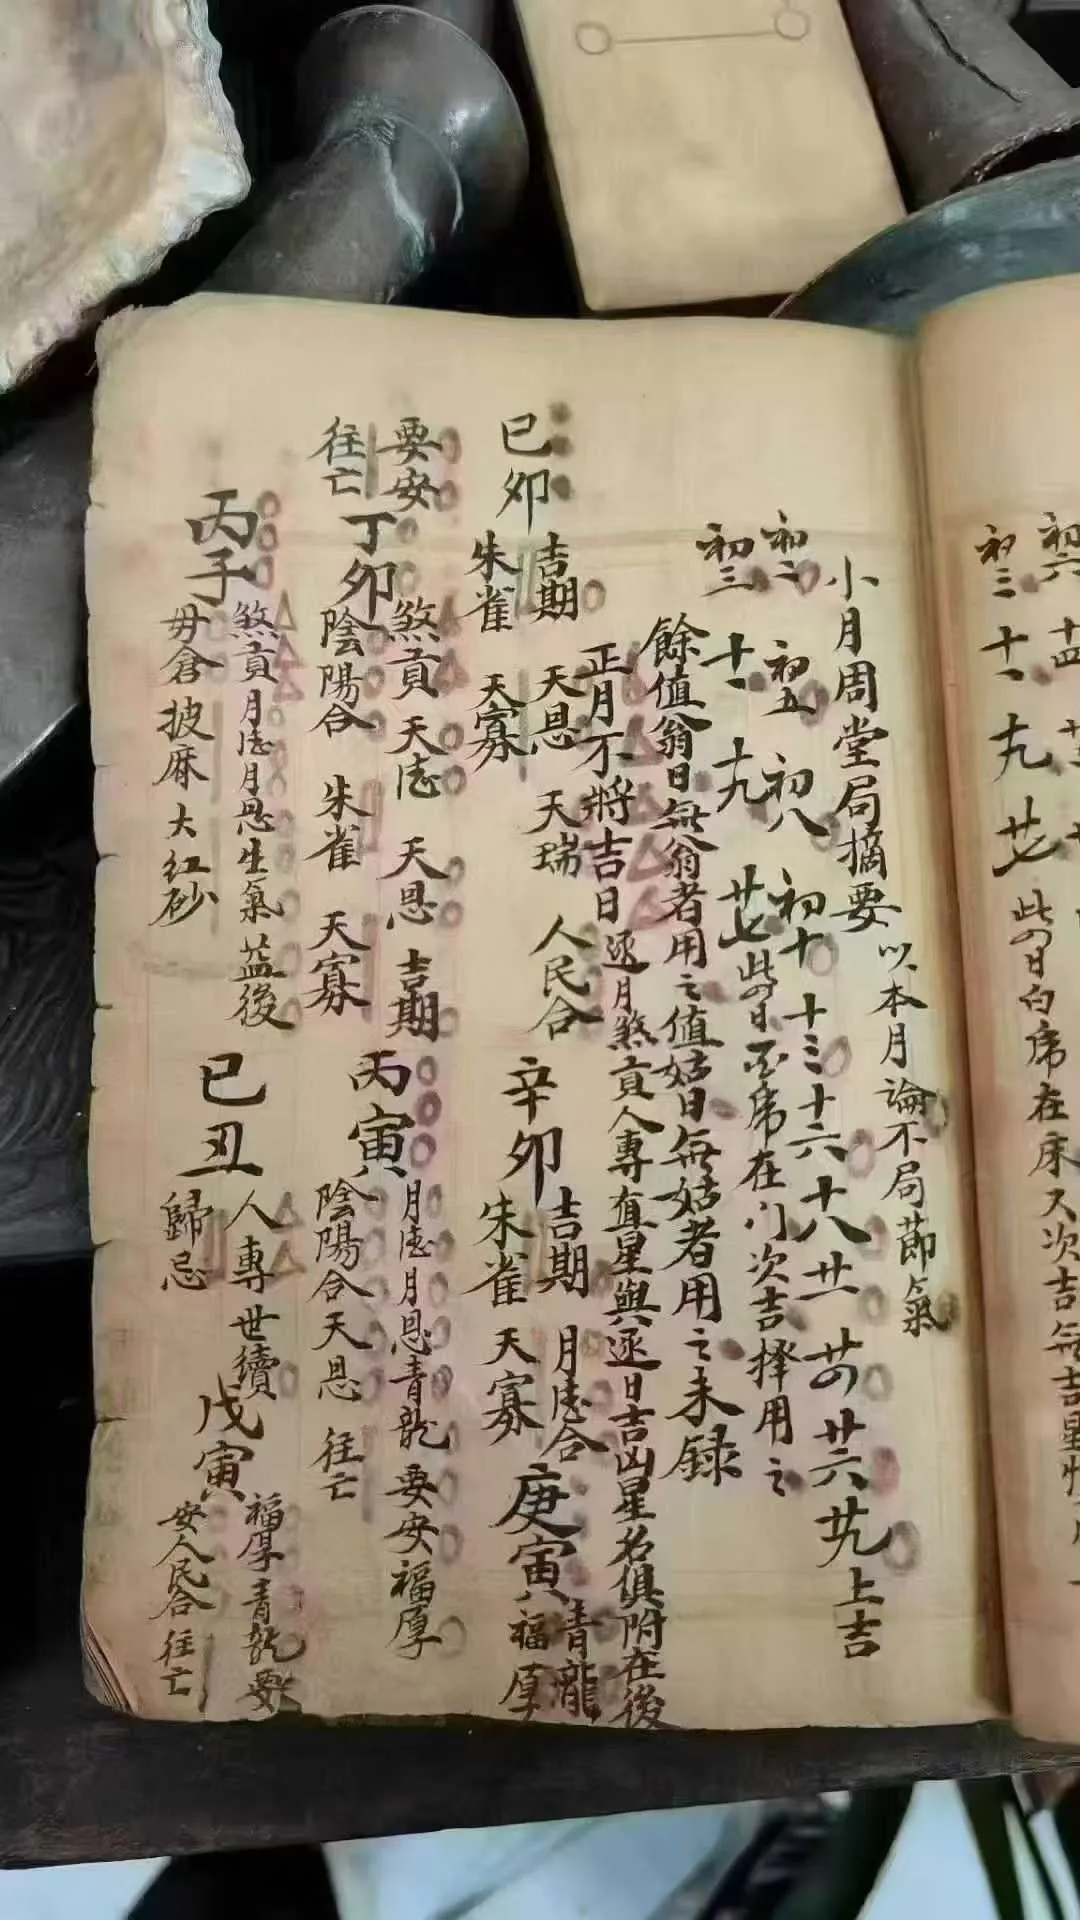 初六 十四 廿
初三 十一 十九 廿七 此四日白席在床又次吉無吉星
小月周堂局摘要 以本月論不局節氣
初二 初五 初八 初十 十三 十六 十八 廿一 廿四 廿六 廿九 上吉
初三 十一 十九 廿七 此四日 席在门次吉擇用之
餘值翁日無翁者用之值姑日無姑者用之未録
正月不將吉日 逐月煞貢人專直星與逐日吉凶星名俱附在後
己卯 吉期 天恩 天瑞 人民合
朱雀 天寡
辛卯 吉期 月德合
朱雀 天寡
庚寅 青瀧
福厚
要安
往亡
丁卯 煞貢 天德 天恩 吉期
陰陽合 朱雀 天寡
丙寅 月德月恩青龍要安福厚
陰陽合天恩 往亡
丙子 煞貢月德月恩生氣益後
毋倉披麻大紅砂
己丑 人專世續
歸忌
戊寅 福厚青龍要
安人民合往亡